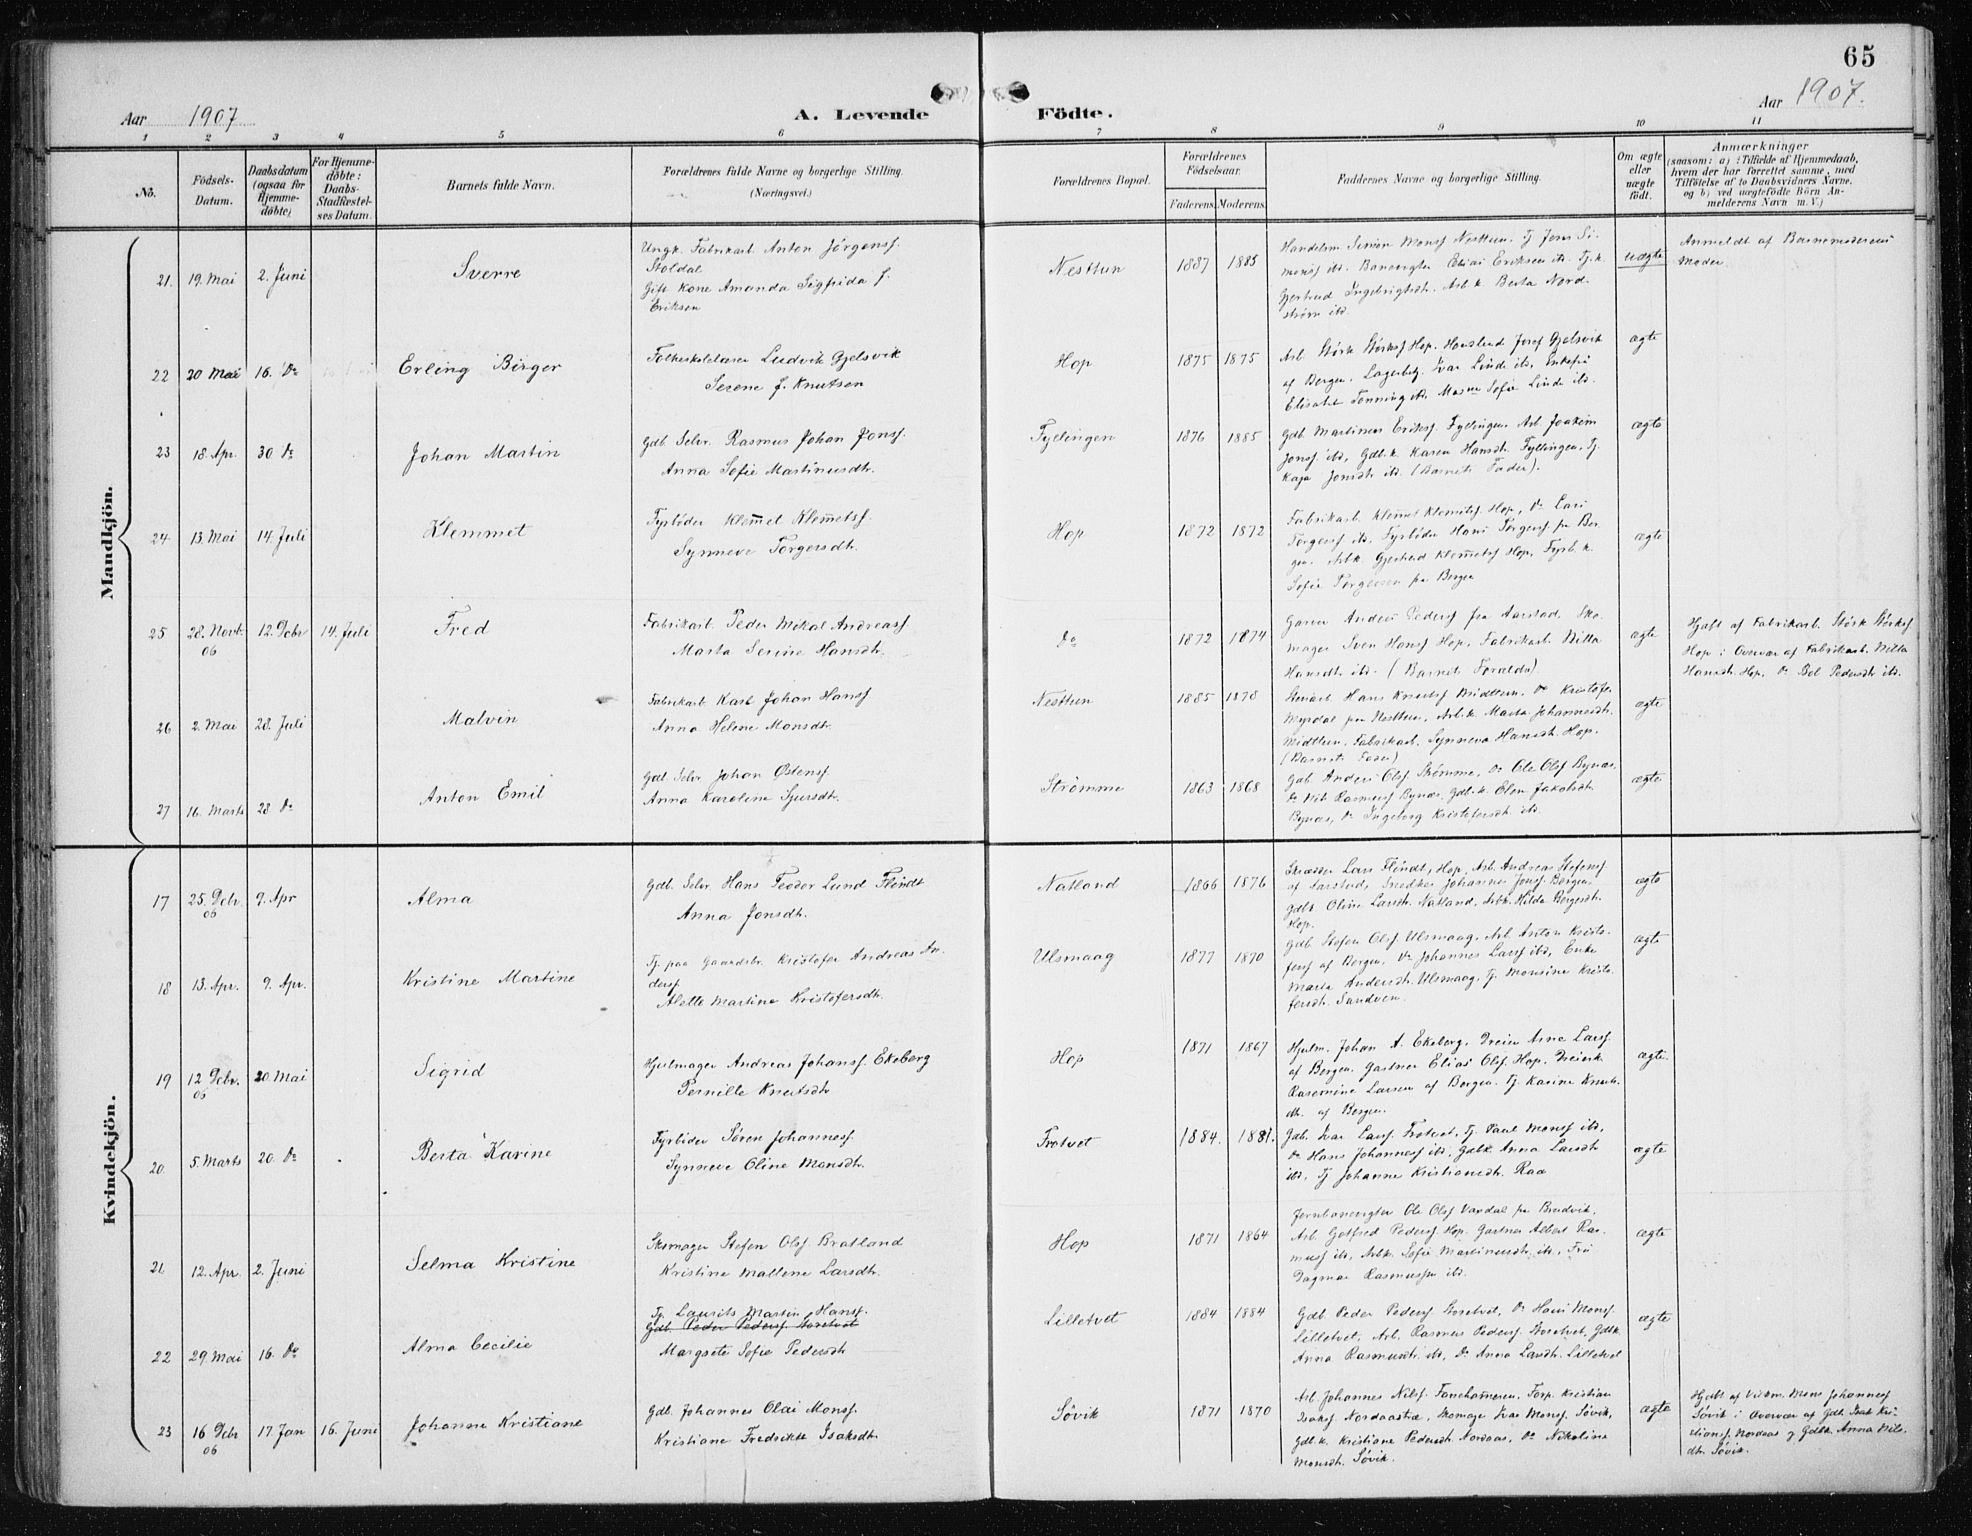 65
Aar 1907
A. Levende Födte.
Aar 1907.
1 2 3 4 5 6 7 8 9 10 11
No.
Födsels-Datum.
Daabsdatum (ogsaa for Hjemme-döbte)
For Hjemme-döbte: Daabs-Stadfæstel-ses Datum.
Barnets fulde Navn.
Forældrenes fulde Navne og borgerlige Stilling. (Næringsvei.)
Forældrenes Bopæl.
Forældrenes Födselsaar.
Faderens. Moderens.
Faddernes Navne og borgerlige Stilling.
Om ægte eller uægte födt.
Anmærkninger
(saasom: a) i Tilfælde af Hjemmedaab,
hvem der har forrettet samme, med
Tilföielse af to Daabsvidners Navne,
og b) ved uægtefödte Börn An-
melderens Navn m. V.)
Mandkjön.
21. 19. Mai 2. Juni Sverre
Ungk. Fabrikarb. Anton Jørgensf.
Stoldal
Gift Kone Amanda Sigfrida f.
Eriksen
Nesttun 1887 1885
Handelsm. Simon Monsf Nesttun. Tj Jens Si-
monsf ibd. Banevogter Elias Eriksen ibd. Tj.k.
Gjertrud Ingebrigtsdt. Arb.k. Berta Nord-
strøm ibd.
uægte
Anmeldt af Barnemoderens
Moder
22 20 Mai 16. Do Erling Birger
Folkeskolelærer Ludvik Gjelsvik
Serene f. Knutsen
Hop 1875 1875
Arb. Størk Størksf Hop. Josef Gjelsvik
af Bergen. Lagerbetj. Ivar Linde ibd, Enkefru
Elisabet Tonning ibd, Sofie Linde ibd.
ægte
23 18. Apr. 30 Do Johan Martin
Gdb. Selv. Rasmus Johan Jonsf.
Anna Sofie Martinusdt.
Fyllingen 1876 1885
Gdb. Martinus Eriksf. Fyllingen. Arb. Joakim
Jonsf. ibd, Gdb.k. Karen Hansdt. Fyllingen. Tj.
Kaja Jonsdt. ibd (Barnets Fader).
ægte
24 13. Mai 14. Juli Klemmet
Fyrbøder Klemet Klemetsf.
Synneve Torgersdt.
Hop 1872 1872
Fabrikarb. Klemet Klemetsf. Hop, Do Lars
Torgersf ibd. Fyrbøder Hans Torgersf fra Ber-
gen. Arbk. Gjertrud Klemetsf Hop. Fyrb.k.
Sofie Torgersen fra Bergen
ægte
25 28. Novb. 06 12. Debr 14. Juli Fred
Fabrikarb. Peder Mikal Andreasf
Marta Serine Hansdt.
Do 1872 1874
Garver Anders Pedersf fra Aarstad. Sko-
mager Sven Hansf Hop. Fabrikarb. Nilla
Hansdt. ibd. (Barnets Forældre)
ægte
Hjdbt af Fabrikarb. Størk Størksf
Hop i Overvær af Fabrikarb. Nilla
Hansdt. Hop. Do Bol Pedersdt. ibd.
26 2. Mai 28. Juli Malvin
Fabrikarb. Karl Johan Hansf
Anna Helene Monsdt.
Nesttun 1885 1878
Hans Knutsf Midttun, Do Kristofer
Myrdal fra Nesttun, Arb.k. Marta Johannesdt.
Midttun. Fabrikarb. Synneva Hansdt. Hop.
(Barnets Fader)
ægte
27 16. Marts 28 Do Anton Emil
Gdb. Selv. Johan Østensf
Anna Karoline Sjursdt.
Strømme 1863 1868
Gdb. Anders Olsf Strømme, Do Ole Olsf Bynæs.
Do Nils Rasmusf Bynæs. Gdb.k. Elen Jakobsdt.
Bynæs, Do Ingeborg Kristofersdt. ibd.
ægte
Kvindekjön.
17 25. Debr. 06 9. Apr Alma
Gdb. Selv. Hans Teodor Lund Flindt
Anna Jonsdt.
Natland 1866 1876
Skræder Lars Flindt, Hop, Arb. Andreas Stefensf
af Aarstad, Snedker Johannes Jonsf Bergen.
Gdbk Oline Larsdt. Natland. Arbk. Hilda Børgesdt.
Hop.
ægte
18 13. Apr. 9. Apr. Kristine Martine
Tj. paa Gaardsbr. Kristofer Andreas An-
dersf
Alette Martine Kristofersdt.
Ulsmaag 1877 1870
Gdb. Stefen Olsf Ulsmaag, Arb. Anton Kristo-
fersf af Bergen, Do Johannes Larsf ibd, Enke
Marta Andersdt. Ulsmaag, Tj. Monsine Kristo-
fersdt. Sandven.
ægte
19 12 Debr. 06 20. Mai Sigrid
Hjulmager Andreas Johansf. Ekeberg
Pernille Knutsdt.
Hop 1871 1867
Hjulm. Johan A. Ekeberg. Dreier Arne Larsf
af Bergen. Gartner Elias Olsf. Hop. Dreierk.
Rasmine Larsen af Bergen. Tj. Karine Knuts-
dt. af Bergen.
ægte.
20. 5. Marts 20. Do Berta Karine
Fyrbøder Søren Johannesf.
Synneve Oline Monsdt.
Trotvet 1884. 1881.
Gdb. Ivar Larsf. Trotvet, Tj. Paul Monsf ibd,
Do Hans Johannesf ibd, Gdbk. Anna Larsdt
ibd, Tj Johanne Kristiansdt. Raa
ægte
21 12. Apr. 2. Juni Selma Kristine
Skomager Stefen Olsf. Bratland
Kristine Mallene Larsdt.
Hop 1871 1864
Jernbanevogter Ole Olsf Vardal fra Brudvik.
Arb. Gotfred Pedersf Hop. Gartner Albert Ras-
musf ibd, Arbk. Sofie Martinusdt. ibd, Fru
Dagmar Rasmussen ibd.
ægte
22 29. Mai 16. Do Alma Cecilie
Tj. Laurits Martin Hansf.
Gdb. Peder Pedersf. Storetvet
Margrete Sofie Pedersdt
Lilletvet 1884 1884
Gdb. Peder Pedersf Storetvet, Do Hans Monsf.
Lilletvet, Arb. Rasmus Pedersf. Storetvet, Gdbk.
Anna Rasmusdt. ibd, Do Anna Larsdt. Lilletvet
ægte
23 16 Debr 06 17 Jan 16. Juni Johanne Kristiane
Gdb. Johannes Olai Monsf.
Kristiane Fredrikke Isaksdt.
Søvik 1871 1870
Arb. Johannes Nilsf. Fanehammeren. Forp. Kristian
Isaksf. Nordaastræ, Skomager Ivar Monsf. Søvik,
Gdb.k. Kristiane Pedersdt. Nordaas, Do Nikoline
Monsdt. Søvik.
ægte
Hjdbt af Mons Johannesf
Søvik i Overvær af Gdb. Isak Kri-
stiansf. Nordaas og Gdbk. Anna Nils-
dt. Søvik.